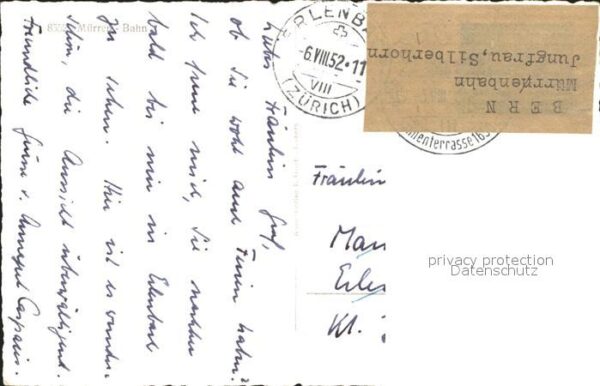 8552 Mürren-Bahn
ERLENB
-6.VIII.52-11
VIII
(ZÜRICH)
BERN
Mürrenbahn
Jungfrau, Silberhorn
Liebes Fräulein Graf,
ob Sie wohl auch Ferien haben?
Ich freue mich, Sie nachher
bald bei mir in Erlenbach
zu sehen. Hier ist es wunder-
schön, die Aussicht überwältigend.
Freundliche Grüsse v. Annegret Caspari.
Fräulein
Mar
Erle
Kt.
privacy protection
Datenschutz